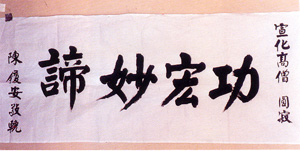 宣化高僧 圓寂
功宏妙諦
陳履安敬輓